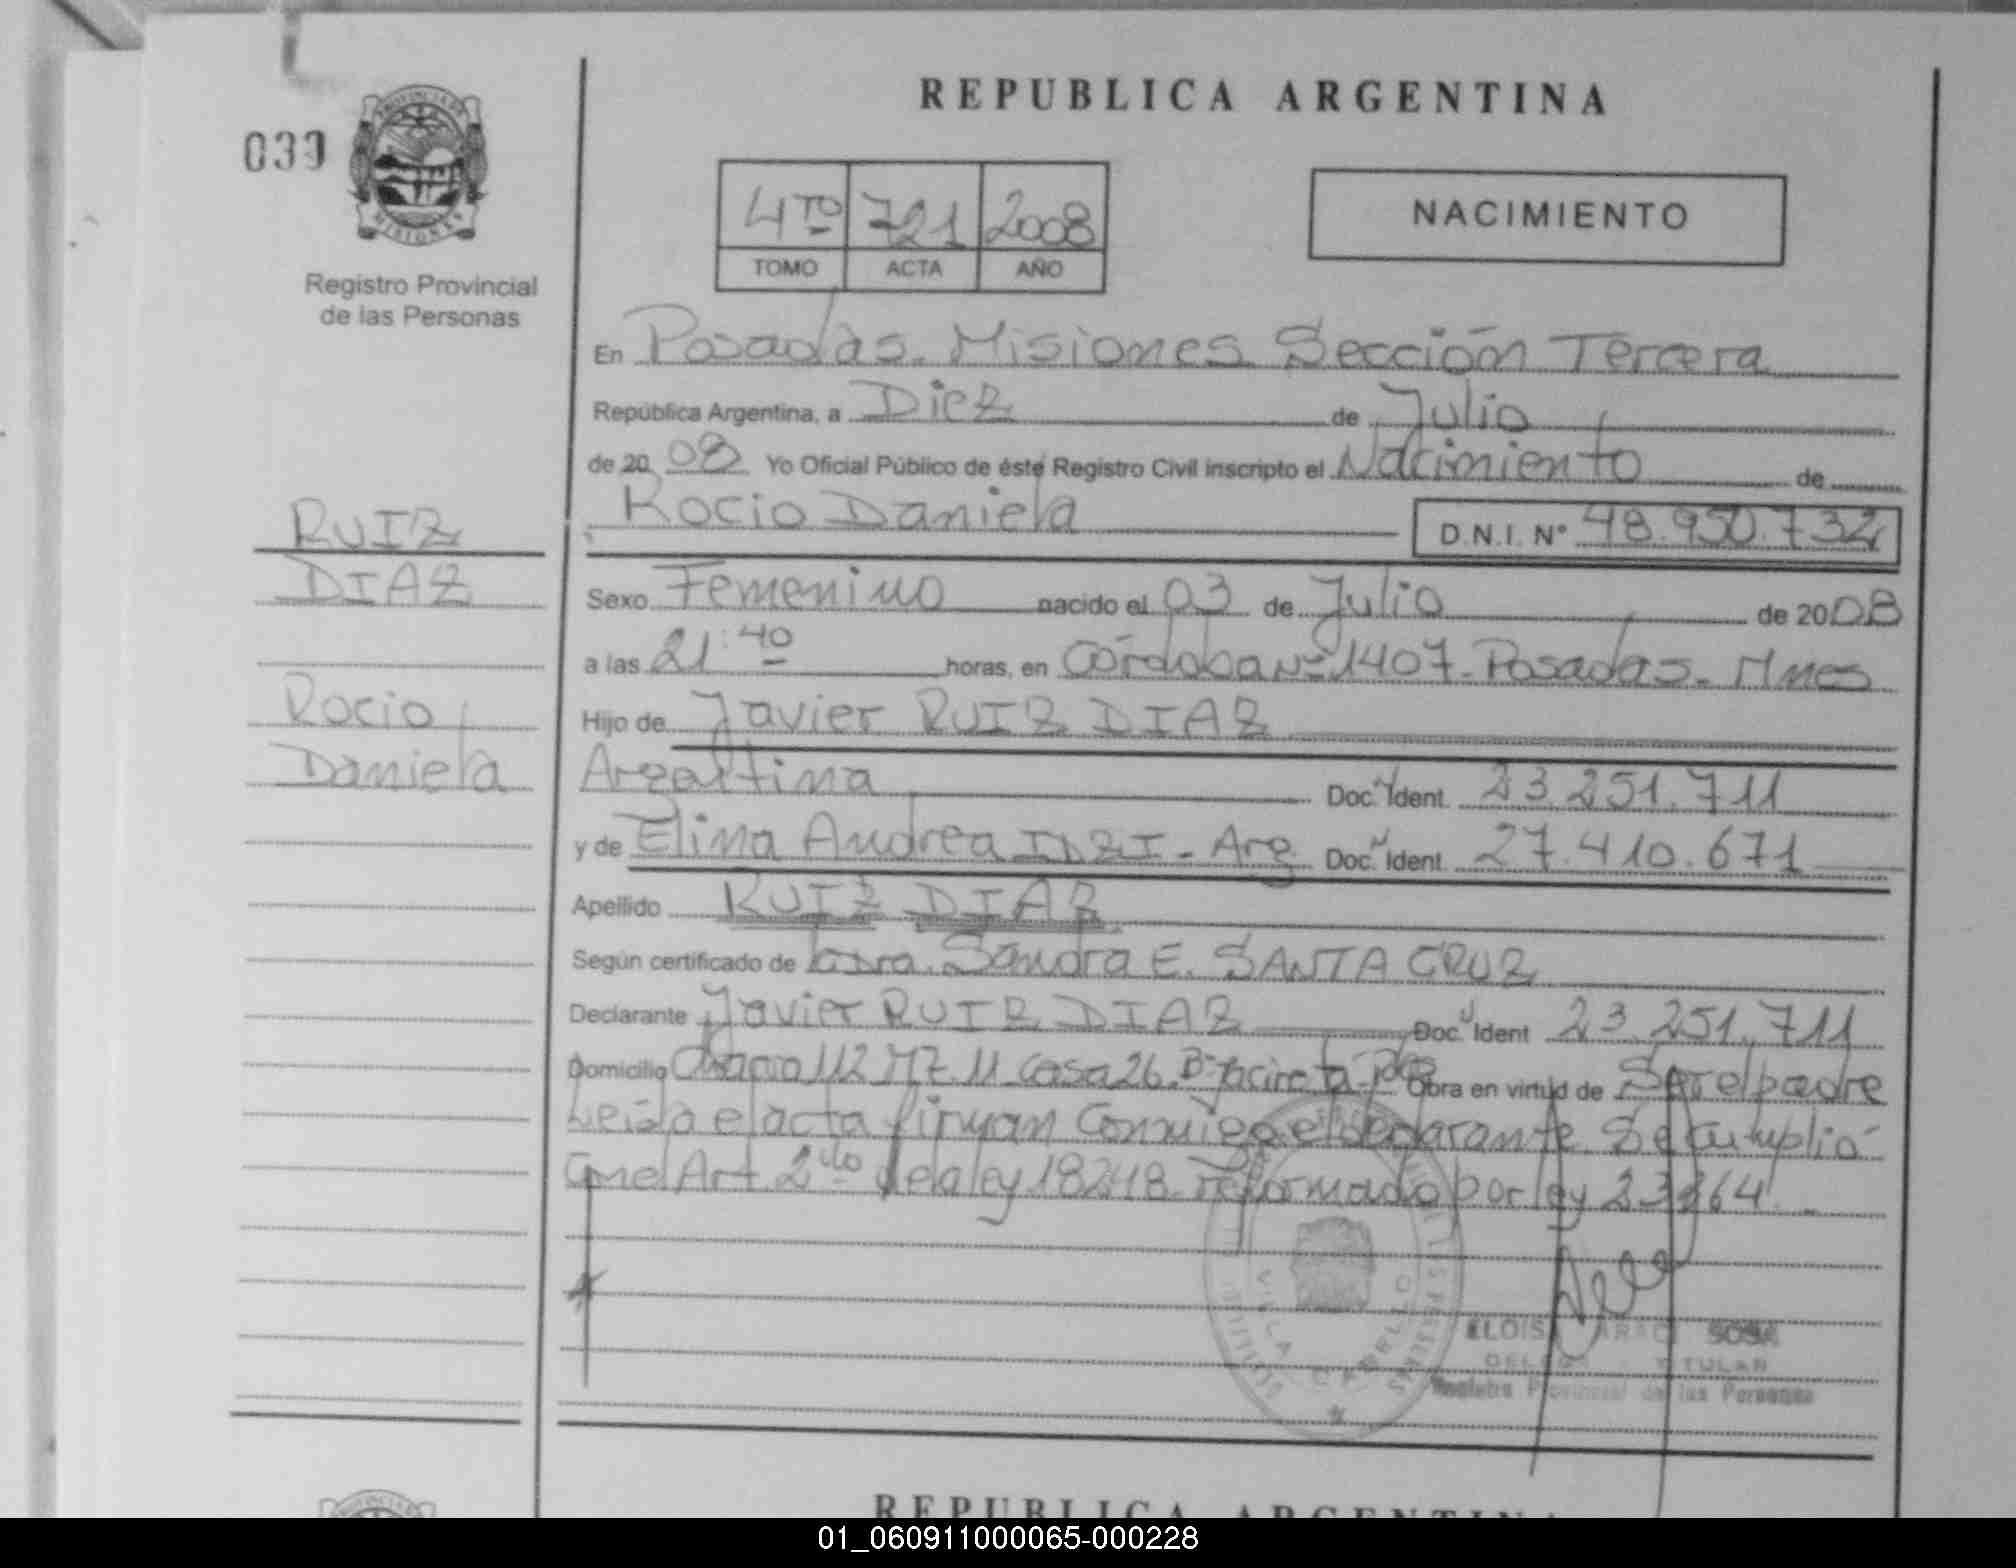 REPUBLICA ARGENTINA
039
PROVINCIA DE
MISIONES
Registro Provincial
de las Personas
4TO 721 2008
TOMO ACTA AÑO
NACIMIENTO
En Posadas. Misiones Sección Tercera
República Argentina, a Diez de Julio
de 20 08 Yo Oficial Público de éste Registro Civil inscripto el Nacimiento de
Rocio Daniela D.N.I. Nº 48.950.732
RUIZ
DIAZ
Rocio
Daniela
Sexo Femenino nacido el 03 de Julio de 2008
a las 21:40 horas, en Córdoba Nº 1407 - Posadas - Mnes
Hijo de Javier RUIZ DIAZ
Argentina Doc. Ident. 23.251.711
y de Elina Andrea - Arg Doc. Ident. 27.410.671
Apellido RUIZ DIAZ
Según certificado de la Dra. Sandra E. SANTA CRUZ
Declarante Javier RUIZ DIAZ Doc. Ident 23.251.711
Domicilio 112 MZ. 11 Casa 26. Bº Yacireta - Pdas Obra en virtud de Ser el padre
Leida el acta firman Conmigo el declarante Se Cumplió
Con el Art. 2do de la ley 18248 reformado por ley 23264. -
VILLA CABELLO
ELOISA SOSA
TITULAR
Registro Provincial de las Personas
REPUBLICA ARGENTINA
01_060911000065-000228